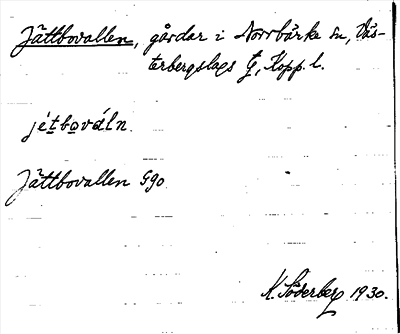 Jättbovallen, gårdar i Norrbärke sn, Väs-
terbergslags tg, Kopp. l.
jétbováln.
Jättbovallen G90
K. Söderberg 1930.